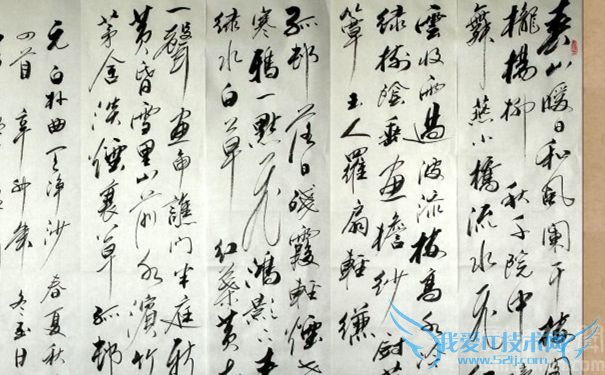 春山暖日和風闌干樓
櫳楊柳 秋千院中
舞燕小橋流水飛
雲收雨過波添樓高水冷
綠樹陰垂畫檐紗廚藤
簟玉人羅扇輕縑
孤邨落日殘霞輕煙老
寒鴉一點飛鴻影下青
綠水白草 紅葉黃花
一聲畫角譙門半庭新
黃昏雪里山前水濱竹
茅舍淡煙衰草孤邨
元白朴曲天淨沙 春夏秋
四首 辛卯 冬至日
我爱IT技术网
www.52ij.com